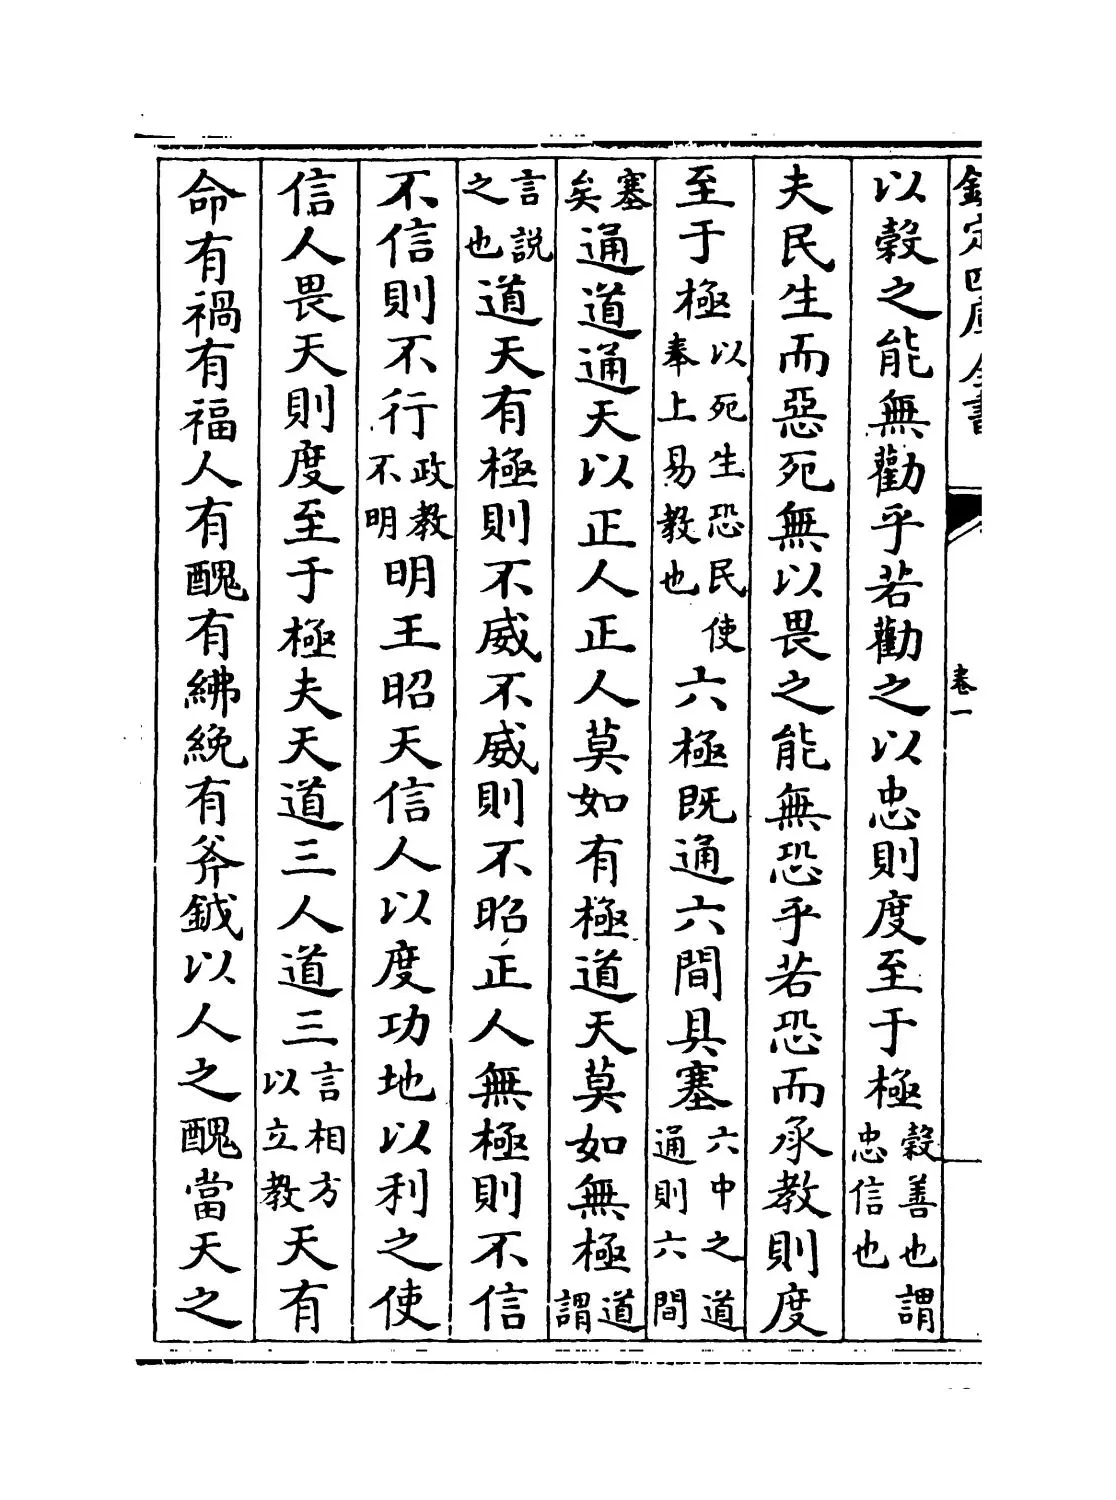 欽定四庫全書
卷一
以榖之能無勸乎若勸之以忠則度至于極榖善也謂忠信也
夫民生而惡死無以畏之能無恐乎若恐而承教則度
至于極以死生恐民使奉上易教也六極既通六間具塞六中之道通則六間
塞矣通道通天以正人正人莫如有極道天莫如無極道謂
言說之也道天有極則不威不威則不昭正人無極則不信
不信則不行政教不明明王昭天信人以度功地以利之使
信人畏天則度至于極夫天道三人道三言相方以立教天有
命有禍有福人有醜有紼絻有斧鉞以人之醜當天之